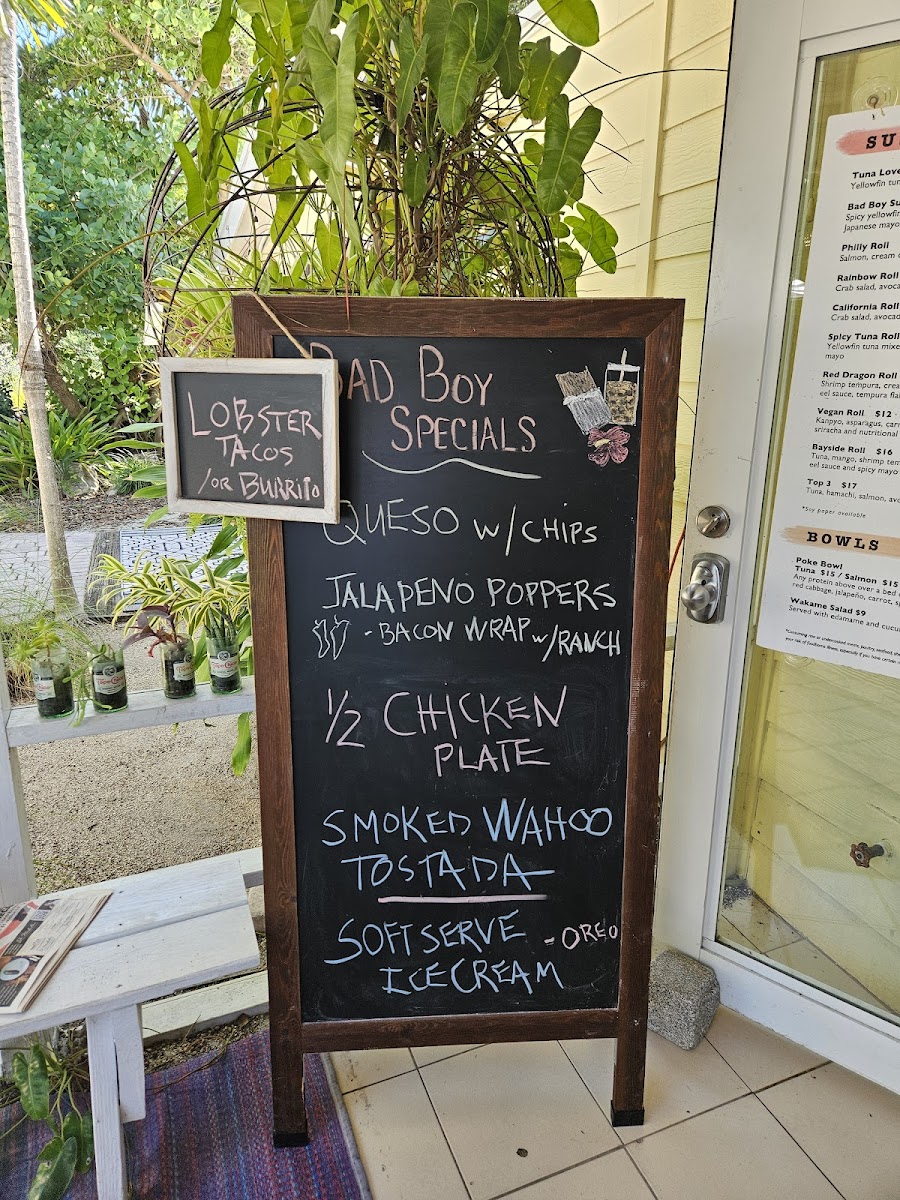 BAD BOY
SPECIALS
LOBSTER
TACOS
/OR BURRITO
QUESO W/CHIPS
JALAPENO POPPERS
- BACON WRAP W/RANCH
1/2 CHICKEN
PLATE
SMOKED WAHOO
TOSTADA
SOFT SERVE - OREO
ICE CREAM
Tuna Love
Yellowfin
Bad Boy
Spicy yellowfin
Japanese mayo
Philly Roll
Salmon, cream
Rainbow Roll
Crab salad,
California Roll
Crab salad,
Spicy Tuna Roll
Yellowfin tuna
mayo
Red Dragon Roll
Shrimp tempura,
eel sauce, tempura
Vegan Roll $12
Kanpyo, asparagus,
sriracha and nutritional
Bayside Roll $16
Tuna, mango, shrimp
eel sauce and spicy mayo
Top 3 $17
Tuna, hamachi, salmon,
*Soy paper available
BOWLS
Poke Bowl
Tuna $15 / Salmon $15
Any protein above over a bed
red cabbage, jalapeño, carrot,
Wakame Salad $9
Served with edamame and